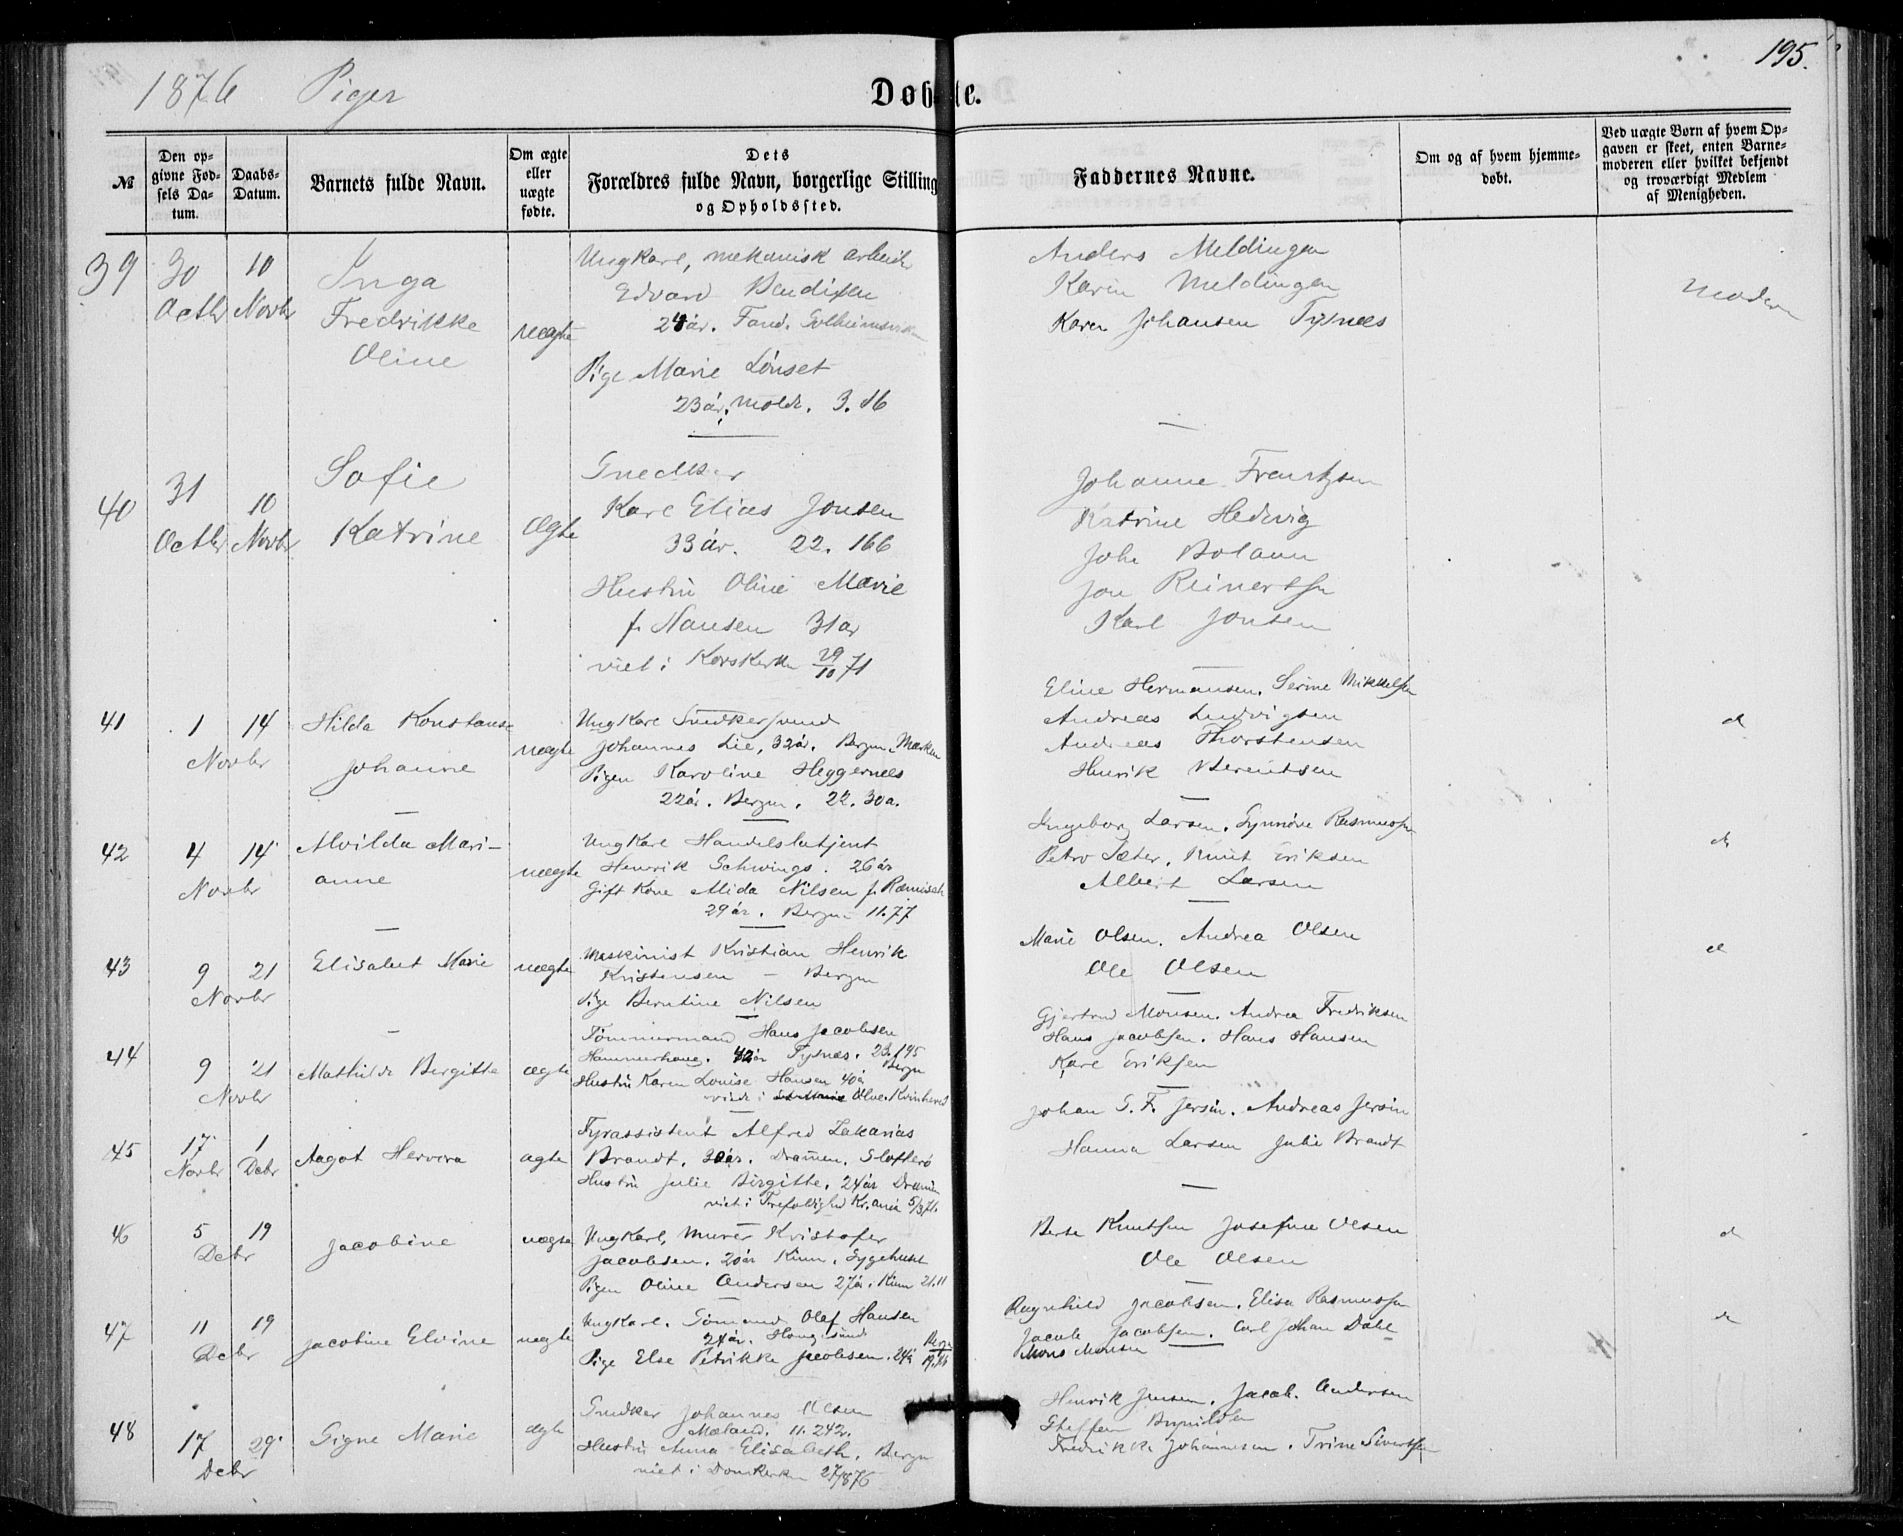 1876 Piger
Døbte.
195.
№
Den opgivne Fødsels Datum.
Daabs-Datum.
Barnets fulde Navn.
Om ægte eller uægte fødte.
Dets Forældres fulde Navn, borgerlige Stilling og Opholdssted.
Faddernes Navne.
Om og af hvem hjemmedøbt.
Ved uægte Børn af hvem Opgaven er skeet, enten Barnemoderen eller hvilket bekjendt og troværdigt Medlem af Menigheden.
39
30 Octbr
10 Novbr
Inga
Fredrikke
Oline
uægte
Ungkarl, mekanisk arbeid
Edvard Bendixen
24 år. Fand.
Pige Marie Lönset
23 år. Molde. 3. 16
Anders Meldingen
Karin Meldingen
Karen Johansen Tysnes
Moderen
40
31 Octbr
10 Novbr
Sofie
Katrine
Ægte
Snedker
Karl Elias Jonsen
33 år. 22. 166
Hustru Oline Marie
f. Nansen 31 ar
viet i Korskirken 29/10 71
Johanne Frantzsen
Katrine Hedevig
Johe Bolann
Jon Reinertsen
Karl Jonsen
41
1 14
Novbr
Hilda Konstanse
Johanne
uægte
Ungkarl Snedkersvend
Johannes Lie, 32 år. Bergen. Marken
Pigen Karoline Heggernes
22 år. Bergen. 22. 30a.
Eline Hermansen. Serine Mikkelsen
Andreas Ludvigsen
Andreas Thorstensen
Henrik Berentsen
d
42
4 14
Novbr
Alvilda Mari-
anne
uægte
Ungkarl Handelsbetjent
Henrik Schwings. 26 år
Gift Kone Alida Nilsen f.
29 år. Bergen 11.77
Ingeborg Larsen. Synnöve Rasmussen
Petro Sæter. Knut Eriksen
Albert Larsen
d
43
9 21
Novbr
Elisabet Marie
uægte
Maskinist Kristian Henrik
Kristensen - Bergen
Pige Berntine Nilsen
Marie Olsen. Andrea Olsen
Ole Olsen
d
44
9 21
Novbr
Mathilde Bergitte
ægte
Tømmermand Hans Jacobsen
Hammerhaug. 42 år Tysnæs. 23.195
Bergen
Hustru Karen Louise Hansen 40 år
Gjertrud Monsen. Andrea Fredriksen
Hans Jacobsen. Hans Hansen
Karl Eriksen
45
17 Novbr
1 Debr
Aagot Hervora
ægte
Fyrassistent Alfred Zakarias
Brandt. 30 år. Dramen. Slotterö
Hustru Julie Birgitte. 24 år Dramen
viet i Trefoldighed Kr.ania 5/3 71.
Johan G. F. Jersin. Andreas Jersin
Hanna Larsen Julie Brandt
46
5 19
Debr
Jacobine
uægte
Ungkarl, Murer Kristofer
Jacobsen. 20 år Kinn. Sygehuset
Pigen Oline Andersen 27 år. Kinn 21.11
Berte Knutsen Josefine Olsen
Ole Olsen
d
47
11 19
Debr
Jacobine Elvine
uægte
Ungkarl. Sømand Olef Hansen
24 år. Haugesund
Pige Else Petrikke Jacobsen. 24 år Bergen
Ragnhild Jacobsen. Elisa Rasmussen
Jacob Jacobsen. Carl Johan Dahl
Mons Monsen
d
48
17 29
Debr
Signe Marie
ægte
Snedker Johannes Olsen
Mæland. 11. 242.
Hustru Anna Elisabeth. Bergen
viet i Domkirken
Henrik Jensen. Jacob. Andersen
Steffen Brynildsen
Fredrikke Johannesen. Trine Sivertsen